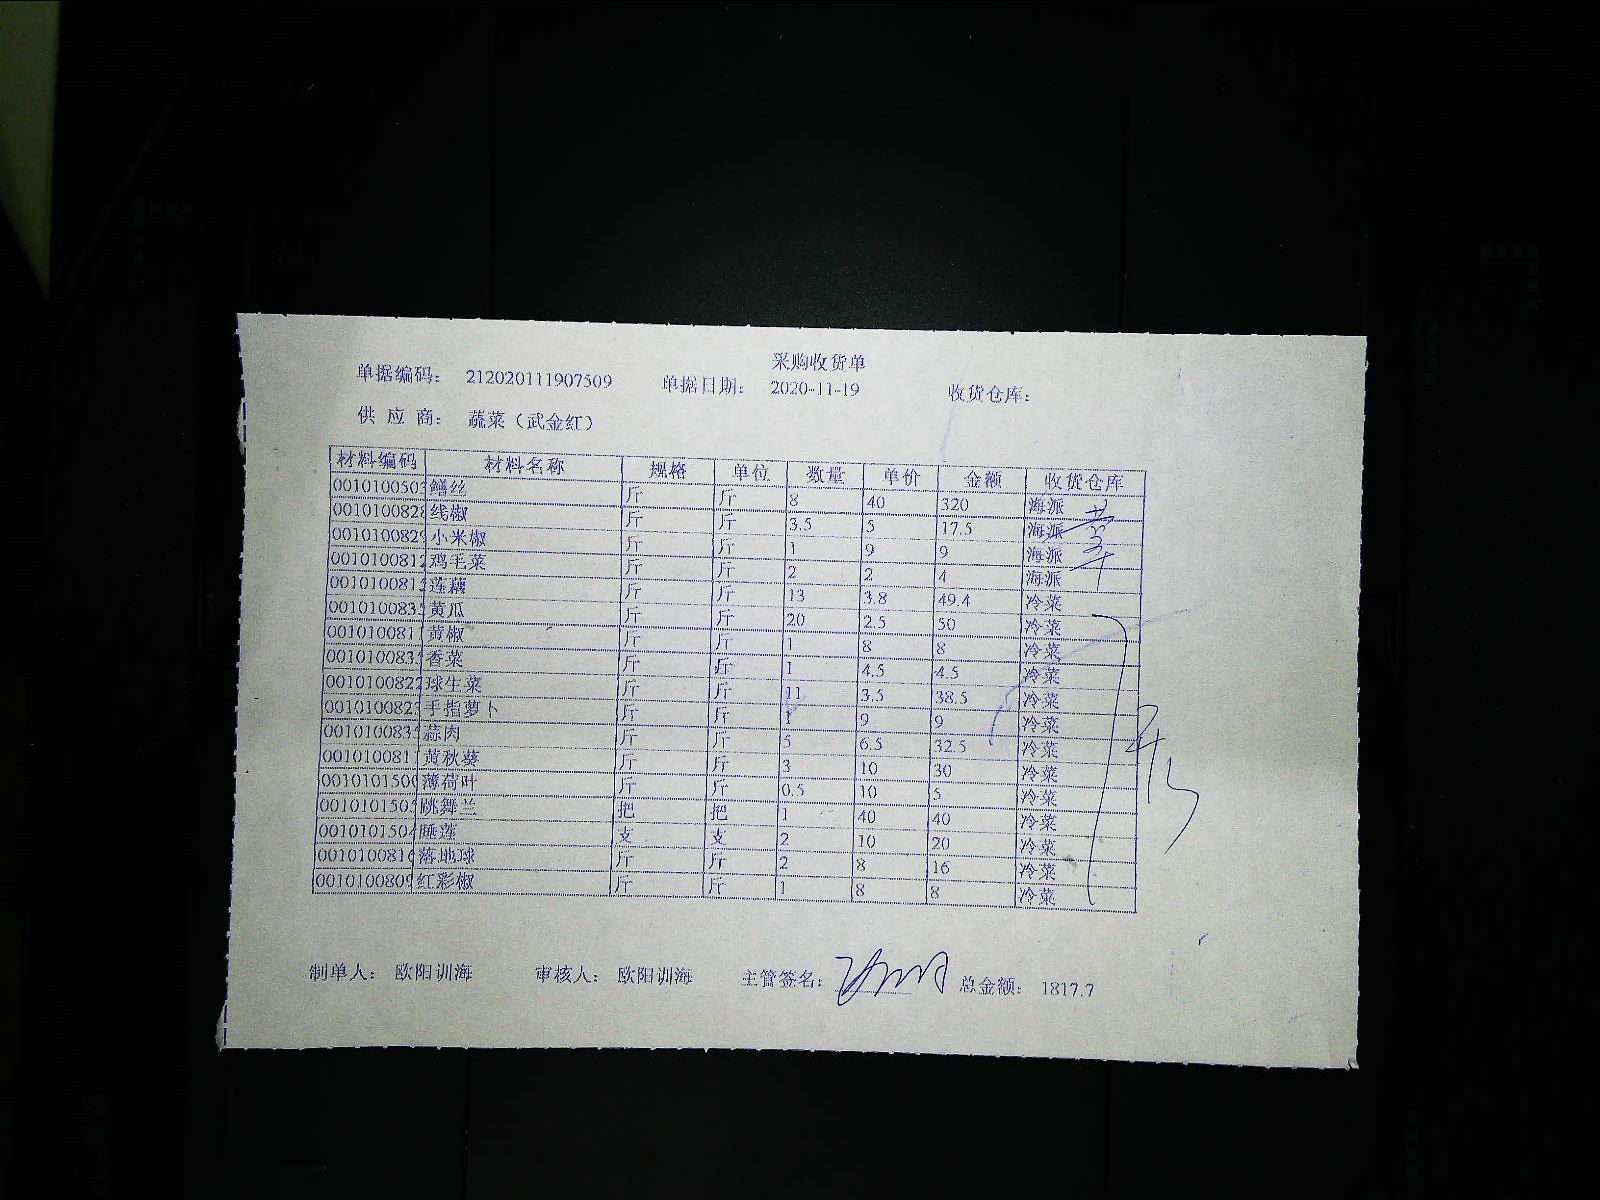 采购收货单
单据编码： 212020111907509 单据日期： 2020-11-19 收货仓库：
供 应 商： 蔬菜（武金红）
材料编码 材料名称 规格 单位 数量 单价 金额 收货仓库
0010100503 鳝丝 斤 斤 8 40 320 海派
0010100828 线椒 斤 斤 3.5 5 17.5 海派
0010100829 小米椒 斤 斤 1 9 9 海派
0010100812 鸡毛菜 斤 斤 2 2 4 海派
001010081 莲藕 斤 斤 13 3.8 49.4 冷菜
001010083 黄瓜 斤 斤 20 2.5 50 冷菜
001010081 黄椒 斤 斤 1 8 8 冷菜
001010083 香菜 斤 斤 1 4.5 4.5 冷菜
0010100822 球生菜 斤 斤 11 3.5 38.5 冷菜
001010082 手指萝卜 斤 斤 1 9 9 冷菜
001010083 蒜肉 斤 斤 5 6.5 32.5 冷菜
001010081 黄秋葵 斤 斤 3 10 30 冷菜
001010150 薄荷叶 斤 斤 0.5 10 5 冷菜
001010150 跳舞兰 把 把 1 40 40 冷菜
0010101504 睡莲 支 支 2 10 20 冷菜
001010081 落地球 斤 斤 2 8 16 冷菜
001010080 红彩椒 斤 斤 1 8 8 冷菜
制单人： 欧阳训海 审核人： 欧阳训海 主管签名： 总金额： 1817.7